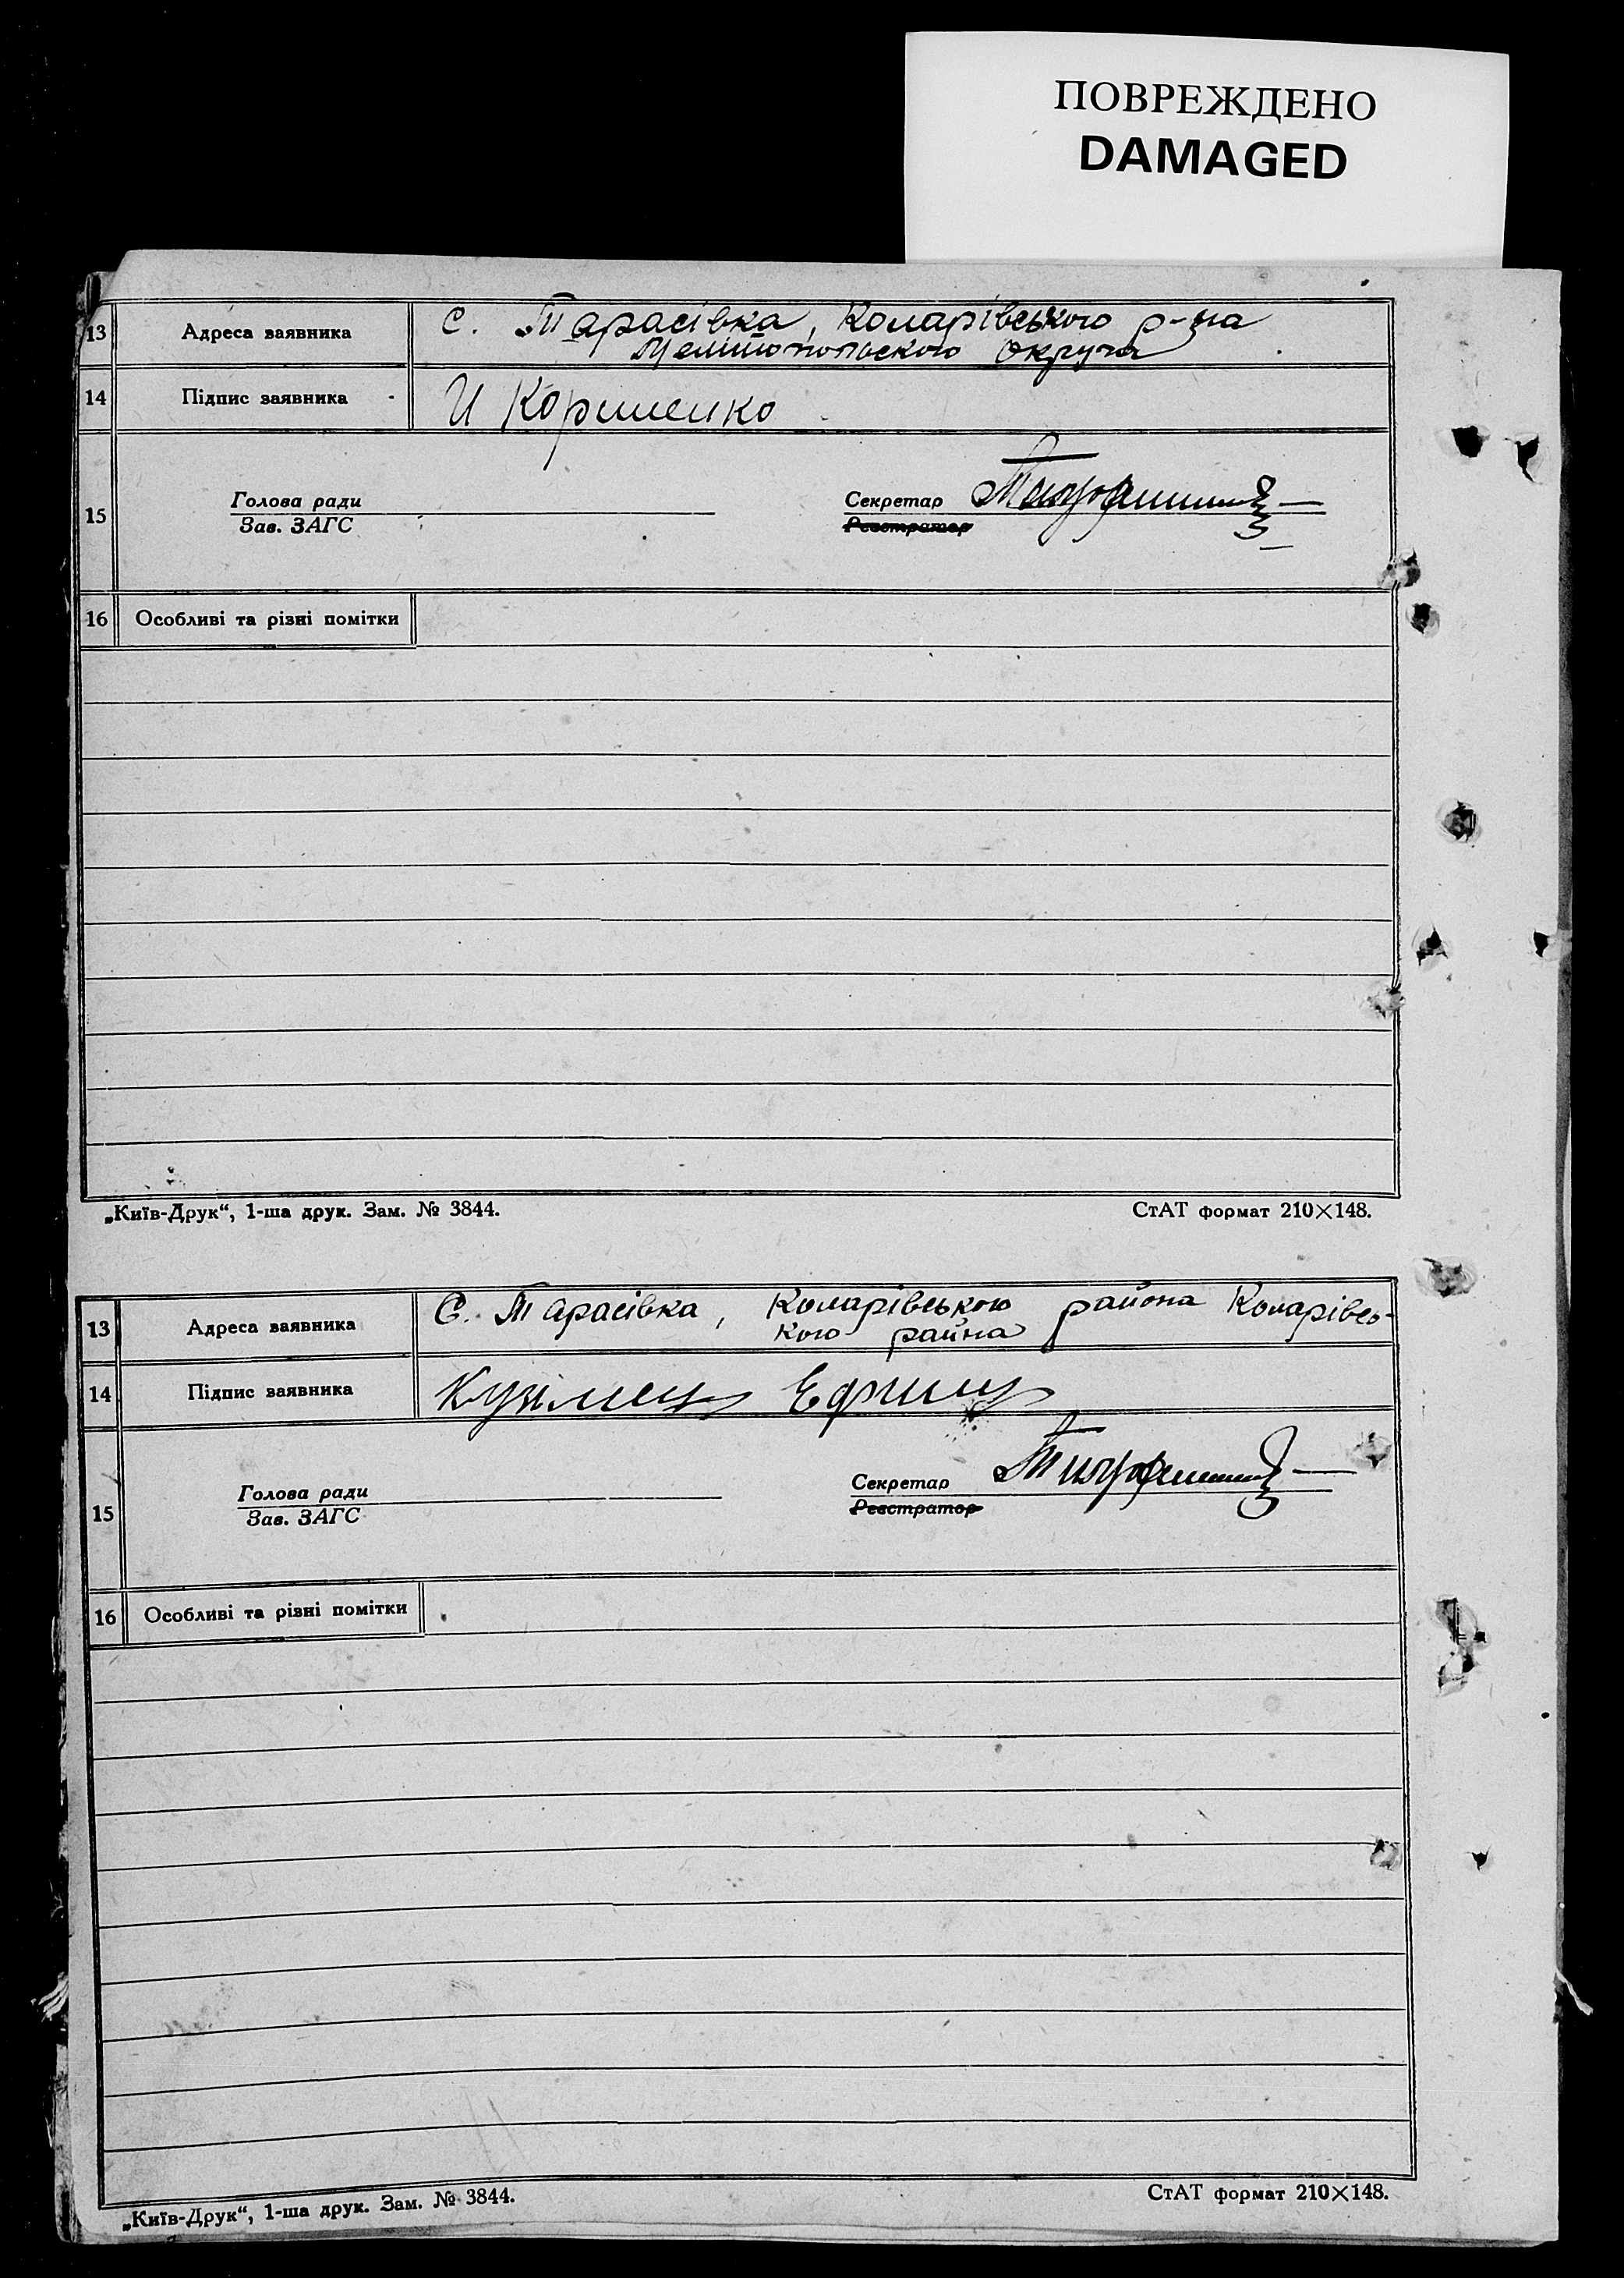 ПОВРЕЖДЕНО
DAMAGED
13 Адреса заявника с. Тарасівка, Коларівського р-на
Мелітопольского Округа
14 Підпис заявника И Коршенко
15 Голова ради Секретар
Зав. ЗАГС Реєстратор
16 Особливі та різні помітки
„Київ-Друк“, 1-ша друк. Зам. № 3844. СтАТ формат 210×148.
13 Адреса заявника С. Тарасівка, Коларівського района Коларівсь-
кого райна
14 Підпис заявника
15 Голова ради Секретар
Зав. ЗАГС Реєстратор
16 Особливі та різні помітки
„Київ-Друк“, 1-ша друк. Зам. № 3844. СтАТ формат 210×148.